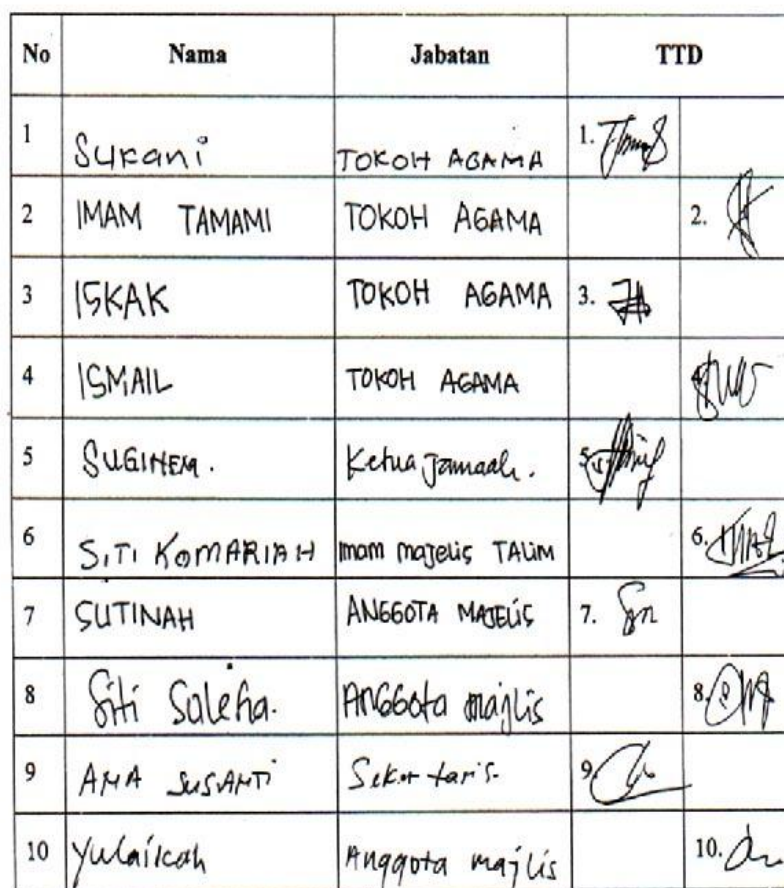 No Nama Jabatan TTD
1 Sukani TOKOH AGAMA 1.
2 IMAM TAMAMI TOKOH AGAMA 2.
3 ISKAK TOKOH AGAMA 3.
4 ISMAIL TOKOH AGAMA 4.
5 SUGINEM. Ketua Jamaah. 5.
6 SITI KOMARIAH Imam majelis TALIM 6.
7 SUTINAH ANGGOTA MAJELIS 7.
8 Siti Saleha. ANGGota majlis 8.
9 ANA SUSANTI Sekertaris- 9.
10 Yulaikah Anggota majlis 10.